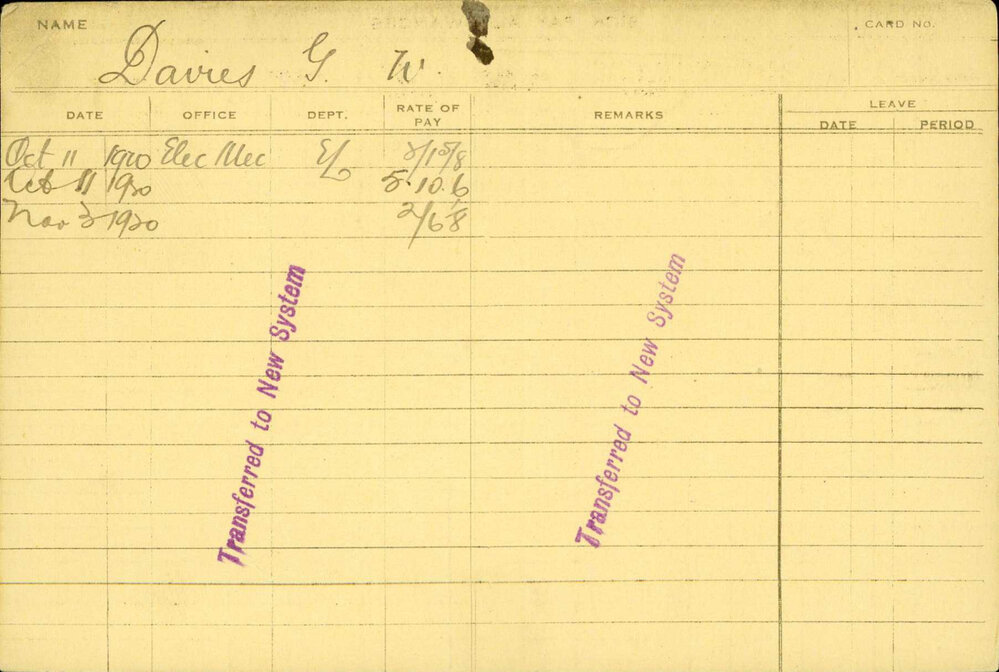 NAME
CARD NO.
Davies G. W.
DATE OFFICE DEPT. RATE OF PAY REMARKS LEAVE
DATE PERIOD
Oct 11 1920 Elec Mec
Oct 11 1920 5.10.6
Nov 3 1920 2/6/8
Transferred to New System
Transferred to New System